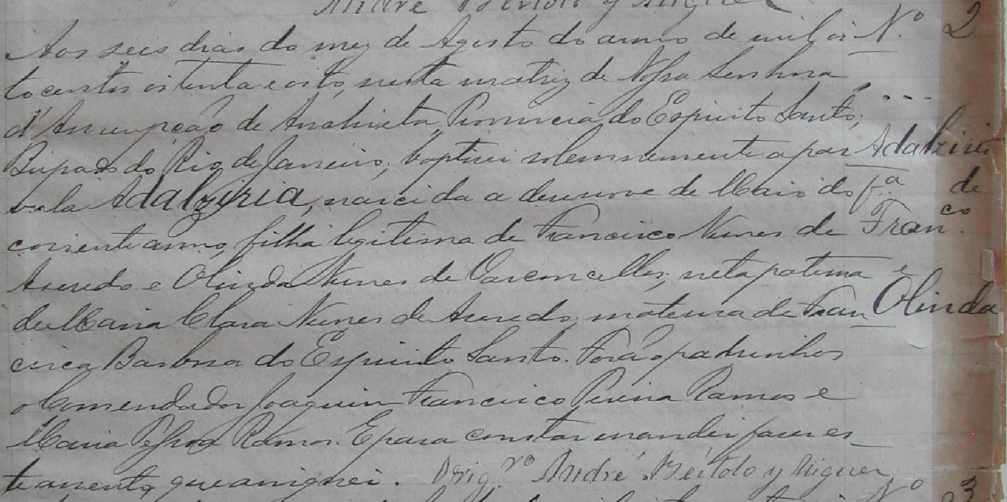 André Bertolo y Miguer
Aos seis dias do mez de Agosto do anno de mil oi
tocentos oitenta e oito, nesta matriz de Nossa Senhora
d'Assumpção de Anchieta, Provincia do Espirito Santo,
Bispado do Rio de Janeiro, baptisei solemnemente a par
vula Adalzyria, nascida a desenove de Maio do
corrente anno, filha legitima de Francisco Nunes de
Azevedo e Olinda Nunes de Vasconcellos, neta paterna
de Maria Clara Nunes de Azevedo, materna de Fran
cisca Barbosa do Espirito Santo. Forão padrinhos
o Comendador Joaquim Francisco Ramos e
Maria Ramos. E para constar mandei faser es
te assento que assignei. Vig.ro André Bertolo y Miguer
Nº 2
Adalziria
f.ª de
Fran.co
e
Olinda
Nº 3